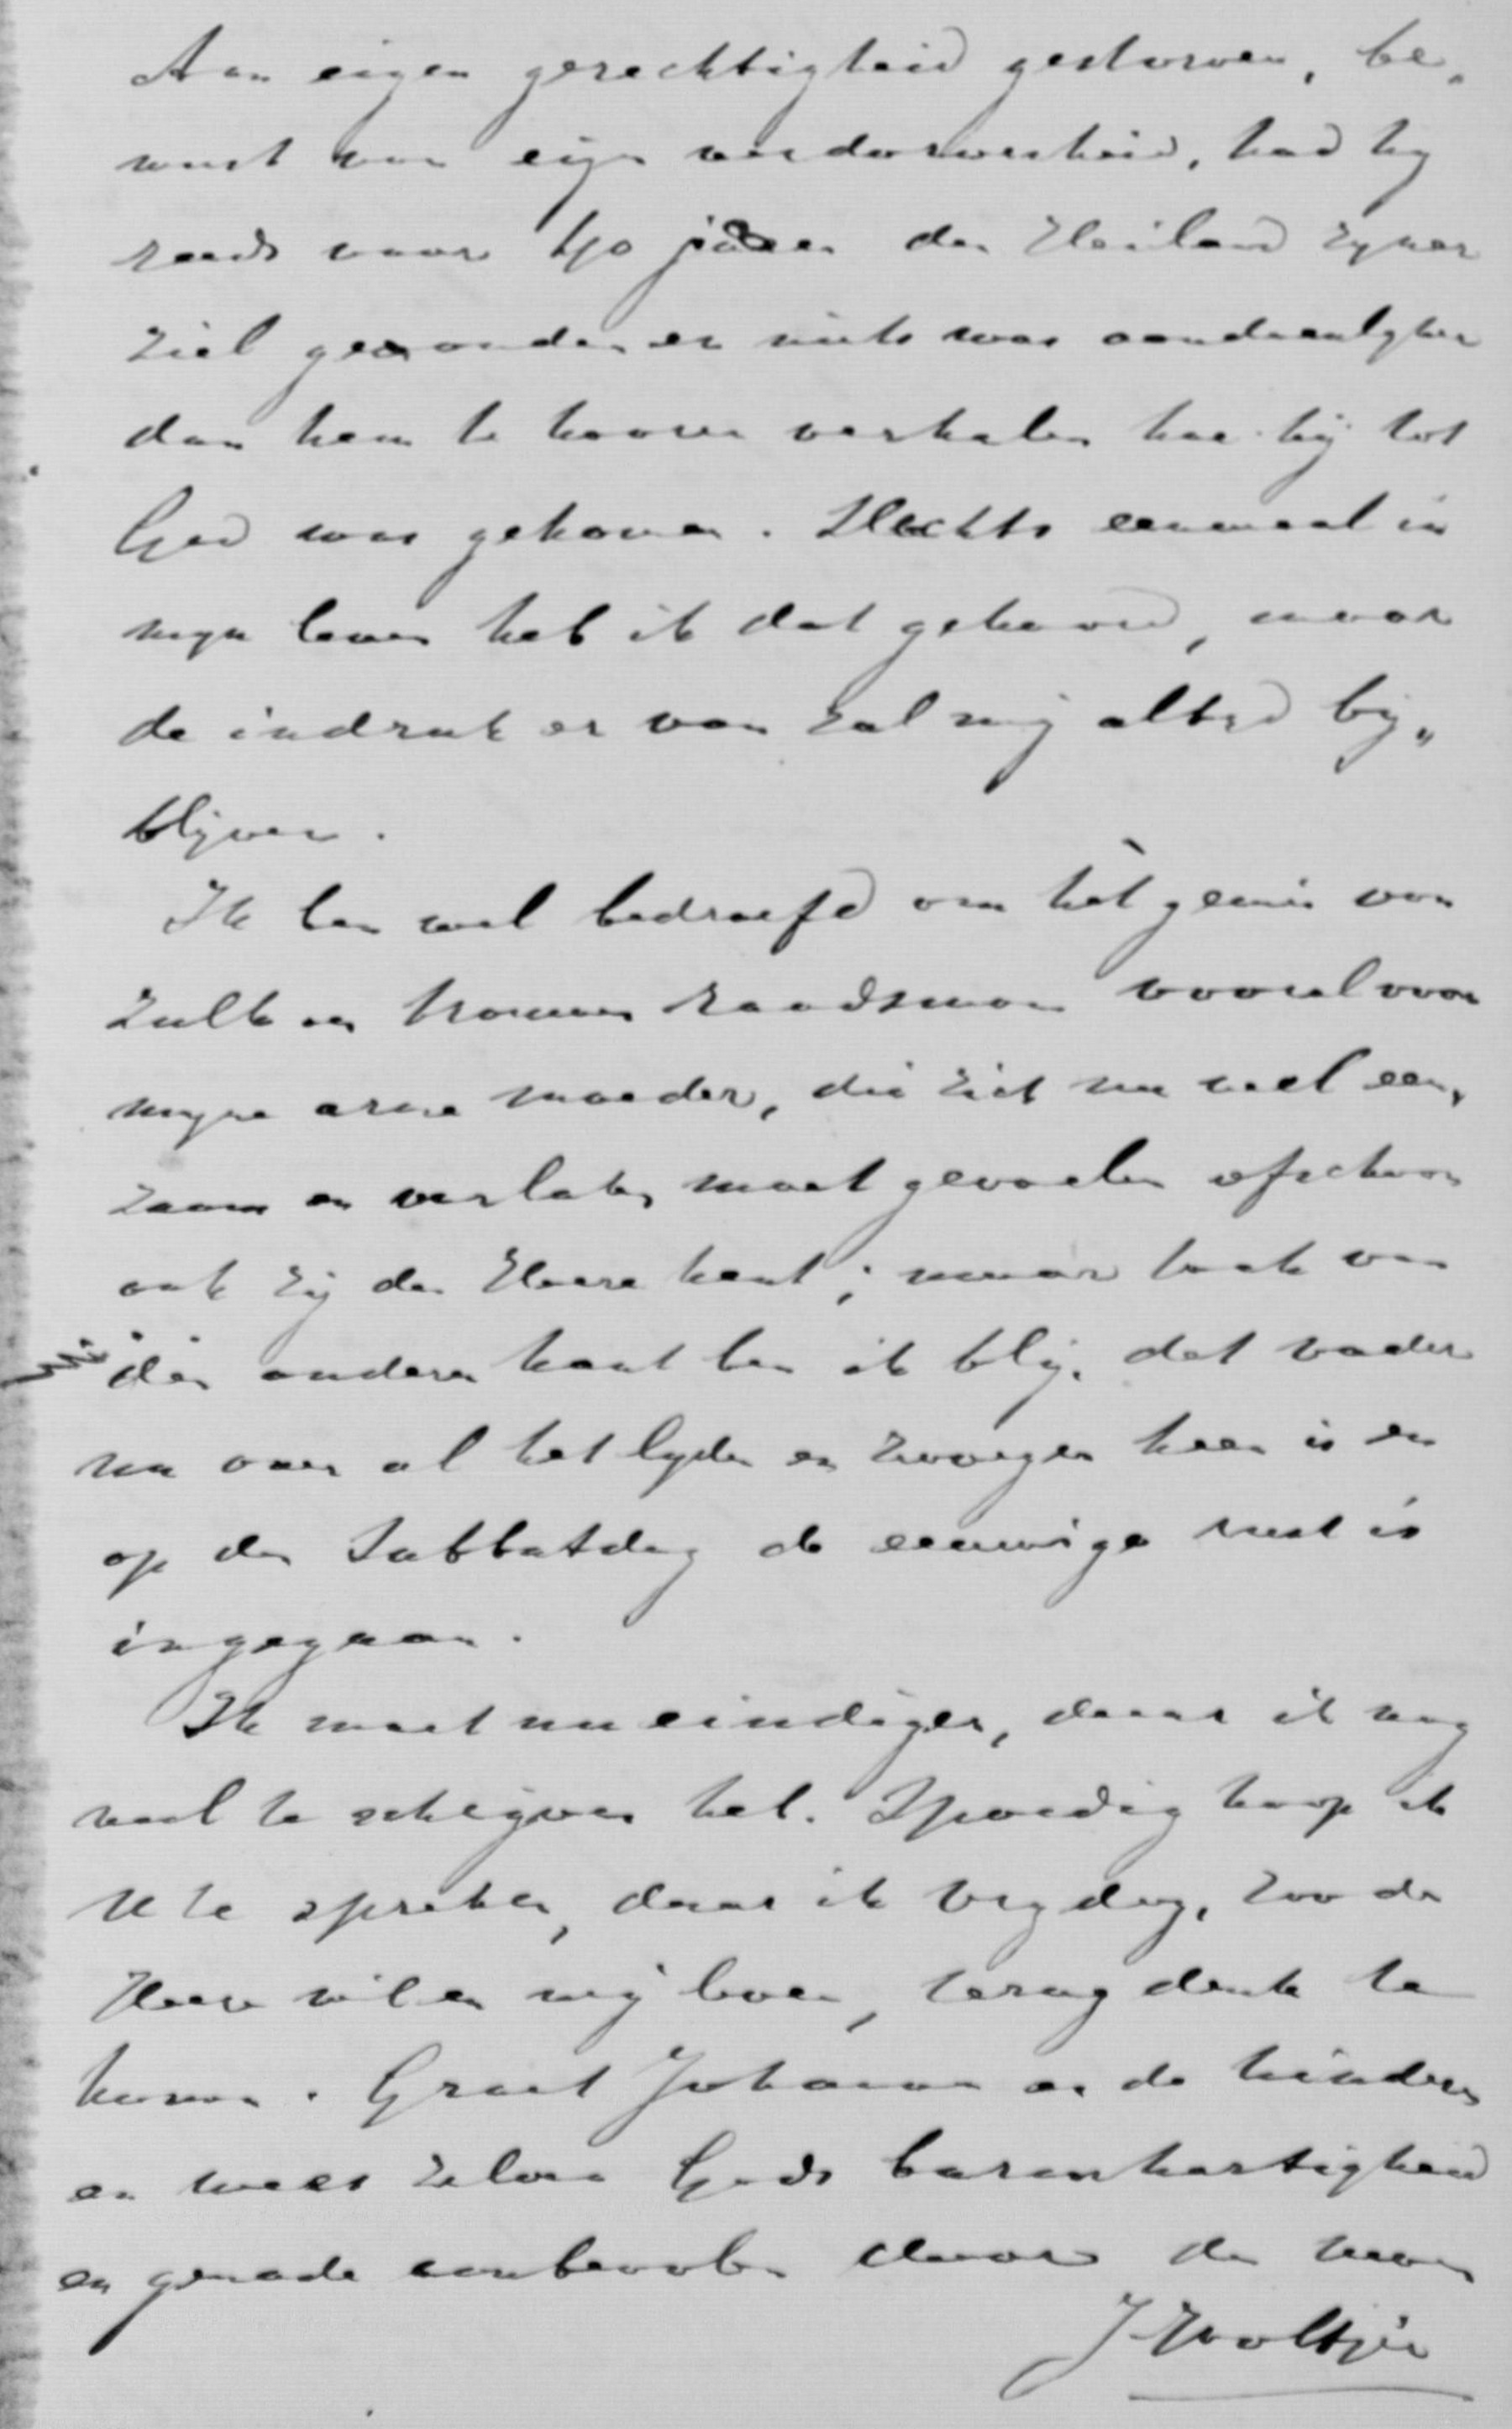 Aan eigen gerechtigheid gestorven, be„
wust van eigen verdorvenheid, had hij
reeds voor 40 jaren den Heiland zijner
ziel gevonden en niets was aandoenlijker
dan hem te hooren verhalen hoe hij tot
God was gekomen. Slechts eenmaal in
mijn leven heb ik dat gehoord, maar
de indruk er van zal mij altijd bij„
blijven.
Ik ben wel bedroefd om het gemis van
zulk een trouwen raadsman vooral voor
mijne arme moeder, die zich nu veel een„
zaam en verlaten moet gevoelen ofschoon
ook zij den Heere kent; maar toch van
den anderen kant ben ik blij, dat vader
nu over al het lijden en zwoegen heen is en
op den Sabbatdag de eeuwige rust is
ingegaan.
Ik moet nu eindigen, daar ik nog
veel te schrijven heb. Spoedig hoop ik
U te spreken, daar ik vrijdag, zoo de
Heere wil en wij leven, terug denk te
komen. Groet Johanna en de kinderen
en wees zelven Gods barmhartigheid
en genade aanbevolen door den uwen
J Woltjer